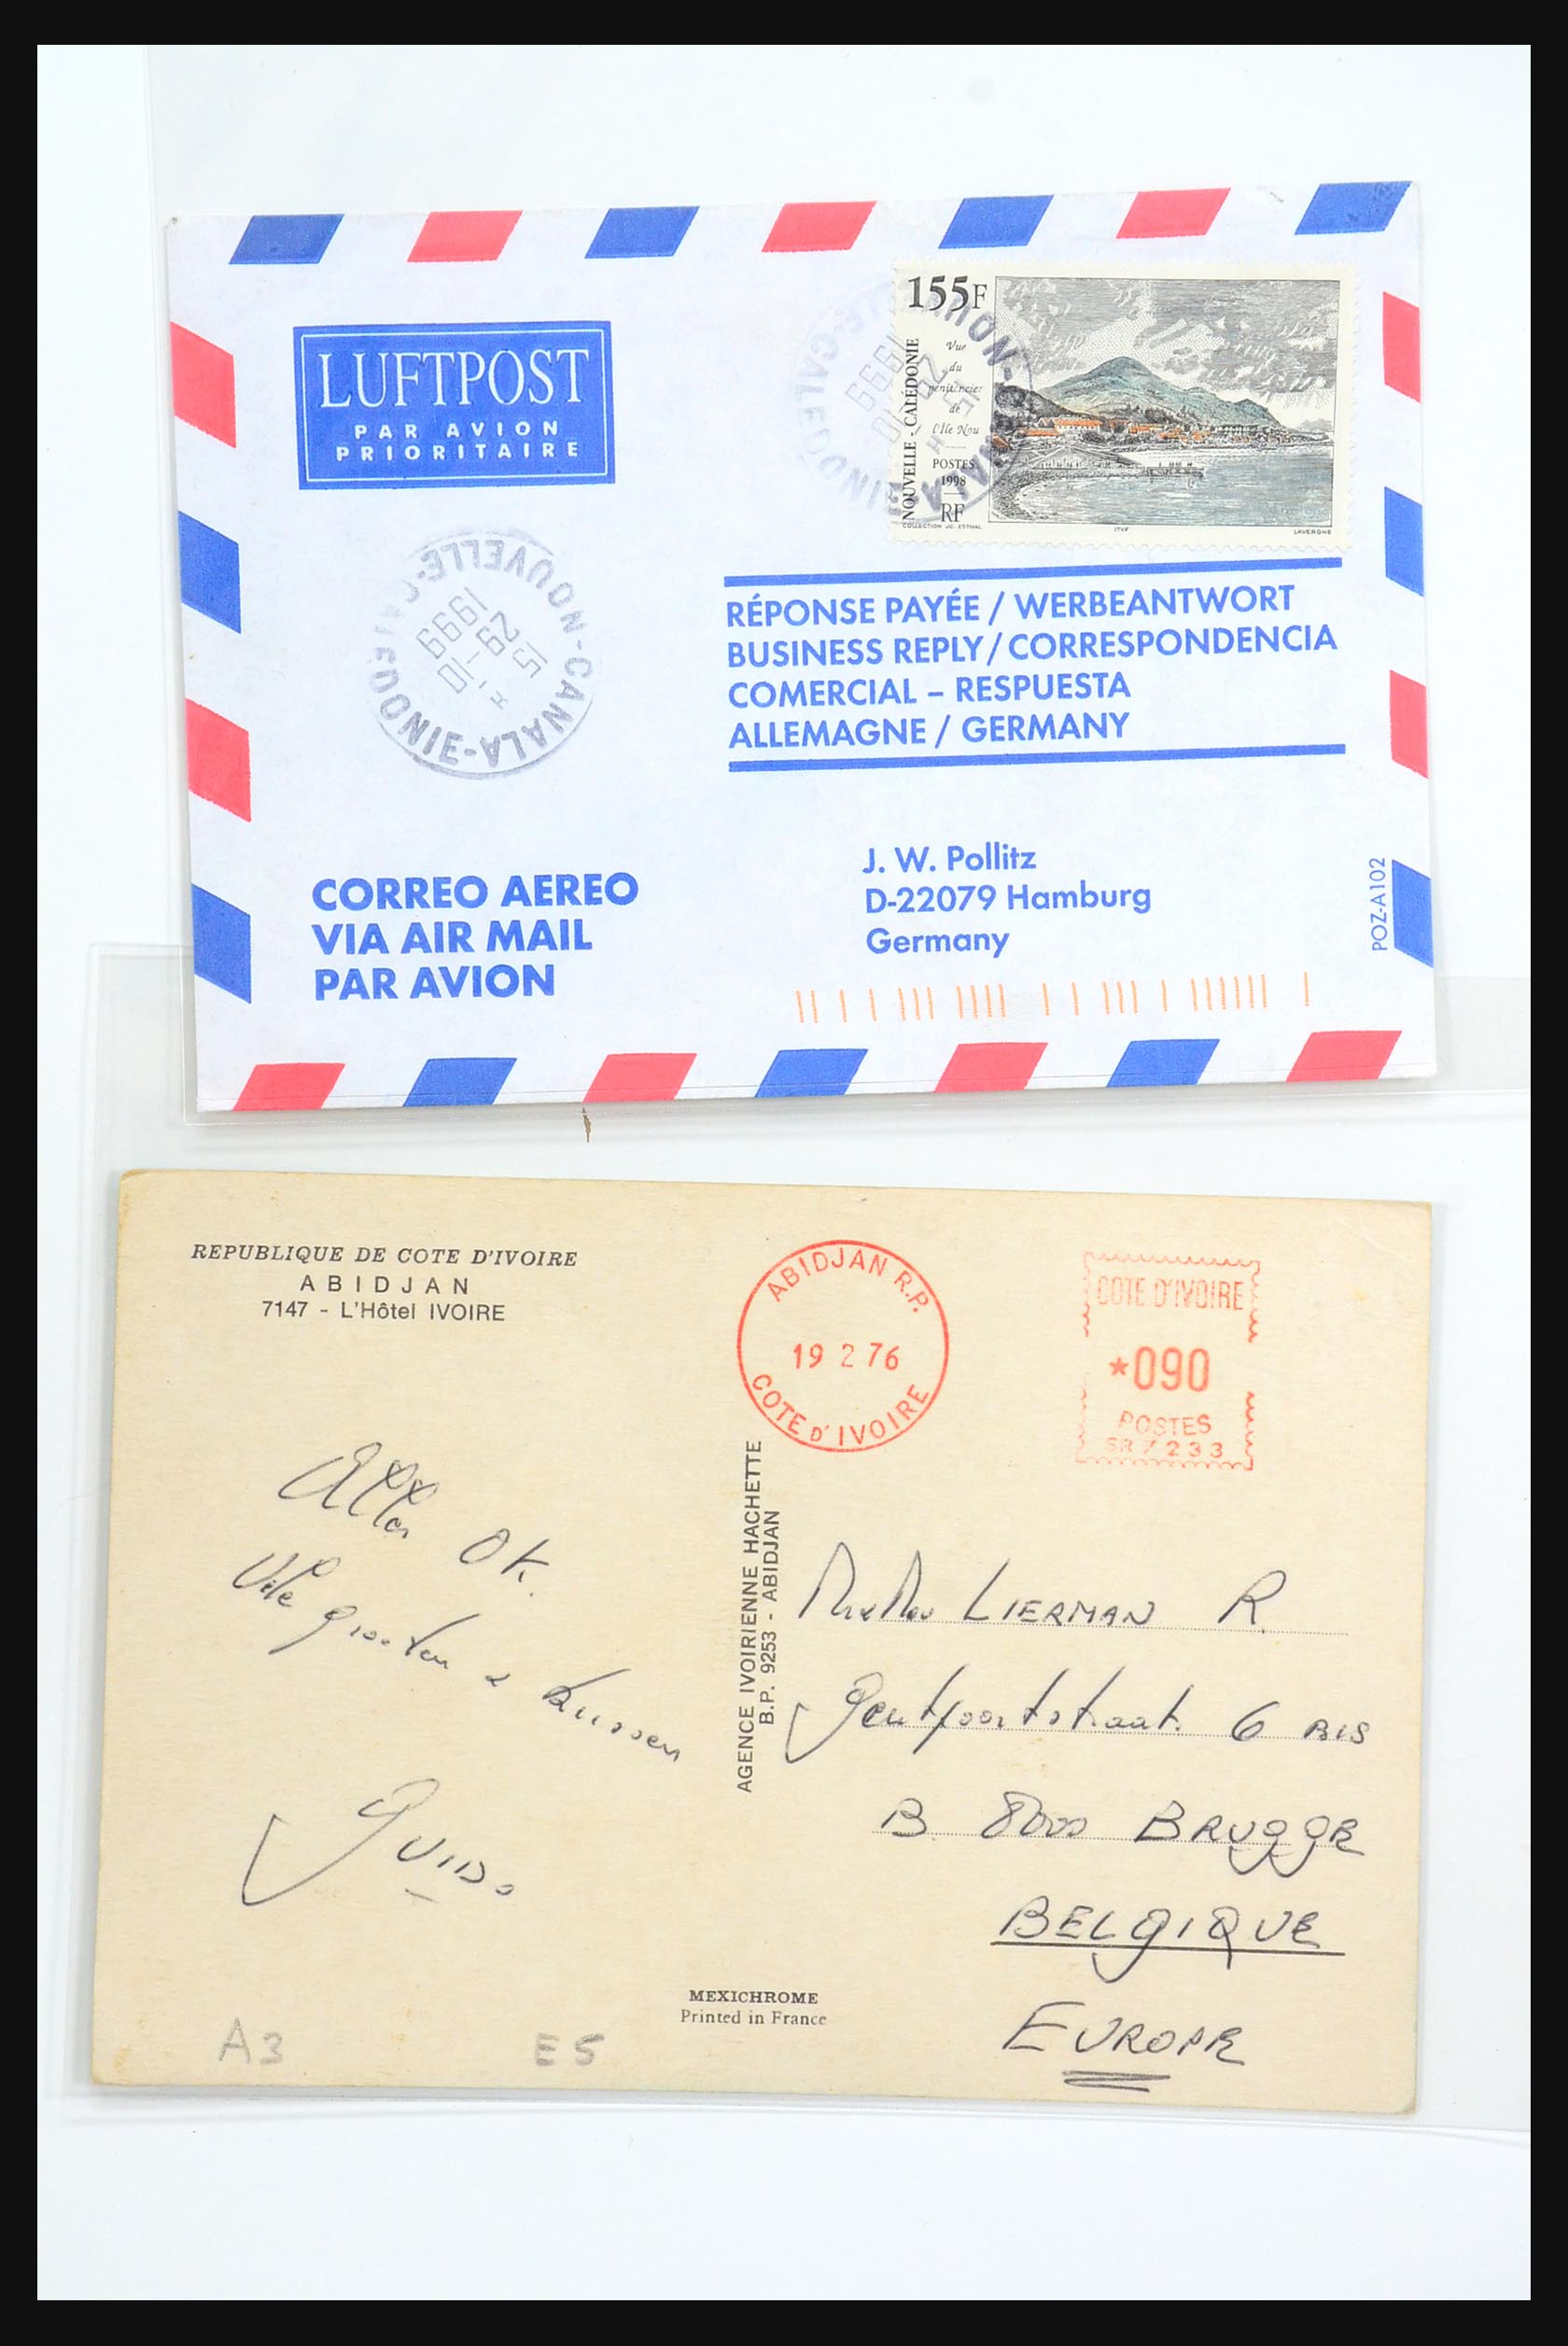 155F
NOUVELLE - CALÉDONIE
Vue
du
pénitencier
de
l'Île Nou
POSTES
1998
RF
COLLECTION JC. ESTIVAL
ITVF
LAVERGNE
LUFTPOST
PAR AVION
PRIORITAIRE
CANALA
NOUVELLE-CALEDONIE
15 H
29-10
1999
RÉPONSE PAYÉE / WERBEANTWORT
BUSINESS REPLY / CORRESPONDENCIA
COMERCIAL – RESPUESTA
ALLEMAGNE / GERMANY
J. W. Pollitz
D-22079 Hamburg
Germany
POZ-A102
CORREO AEREO
VIA AIR MAIL
PAR AVION
REPUBLIQUE DE COTE D'IVOIRE
ABIDJAN
7147 - L'Hôtel IVOIRE
ABIDJAN R.P.
19 2 76
COTE D'IVOIRE
COTE D'IVOIRE
*090
POSTES
SR 7233
Alles OK.
Vele groeten & kussen
GUIDO
AGENCE IVOIRIENNE HACHETTE
B.P. 9253 - ABIDJAN
LIERMAN R.
Gentpoortstraat 6 BIS
B 8000 BRUGGE
BELGIQUE
EUROPE
MEXICHROME
Printed in France
A3 E5